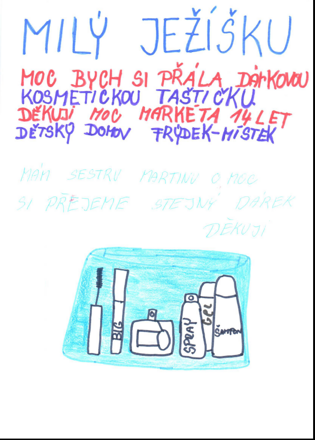 MILÝ JEŽÍŠKU
MOC BYCH SI PŘÁLA DÁRKOVOU
KOSMETICKOU TAŠTIČKU
DĚKUJI MOC MARKÉTA 14 LET
DĚTSKÝ DOMOV FRÝDEK-MÍSTEK
MÁM SESTRU MARTINU O MOC
SI PŘEJEME STEJNÝ DÁREK
DĚKUJI
BIG
SPRAY
GEL
ŠAMPON